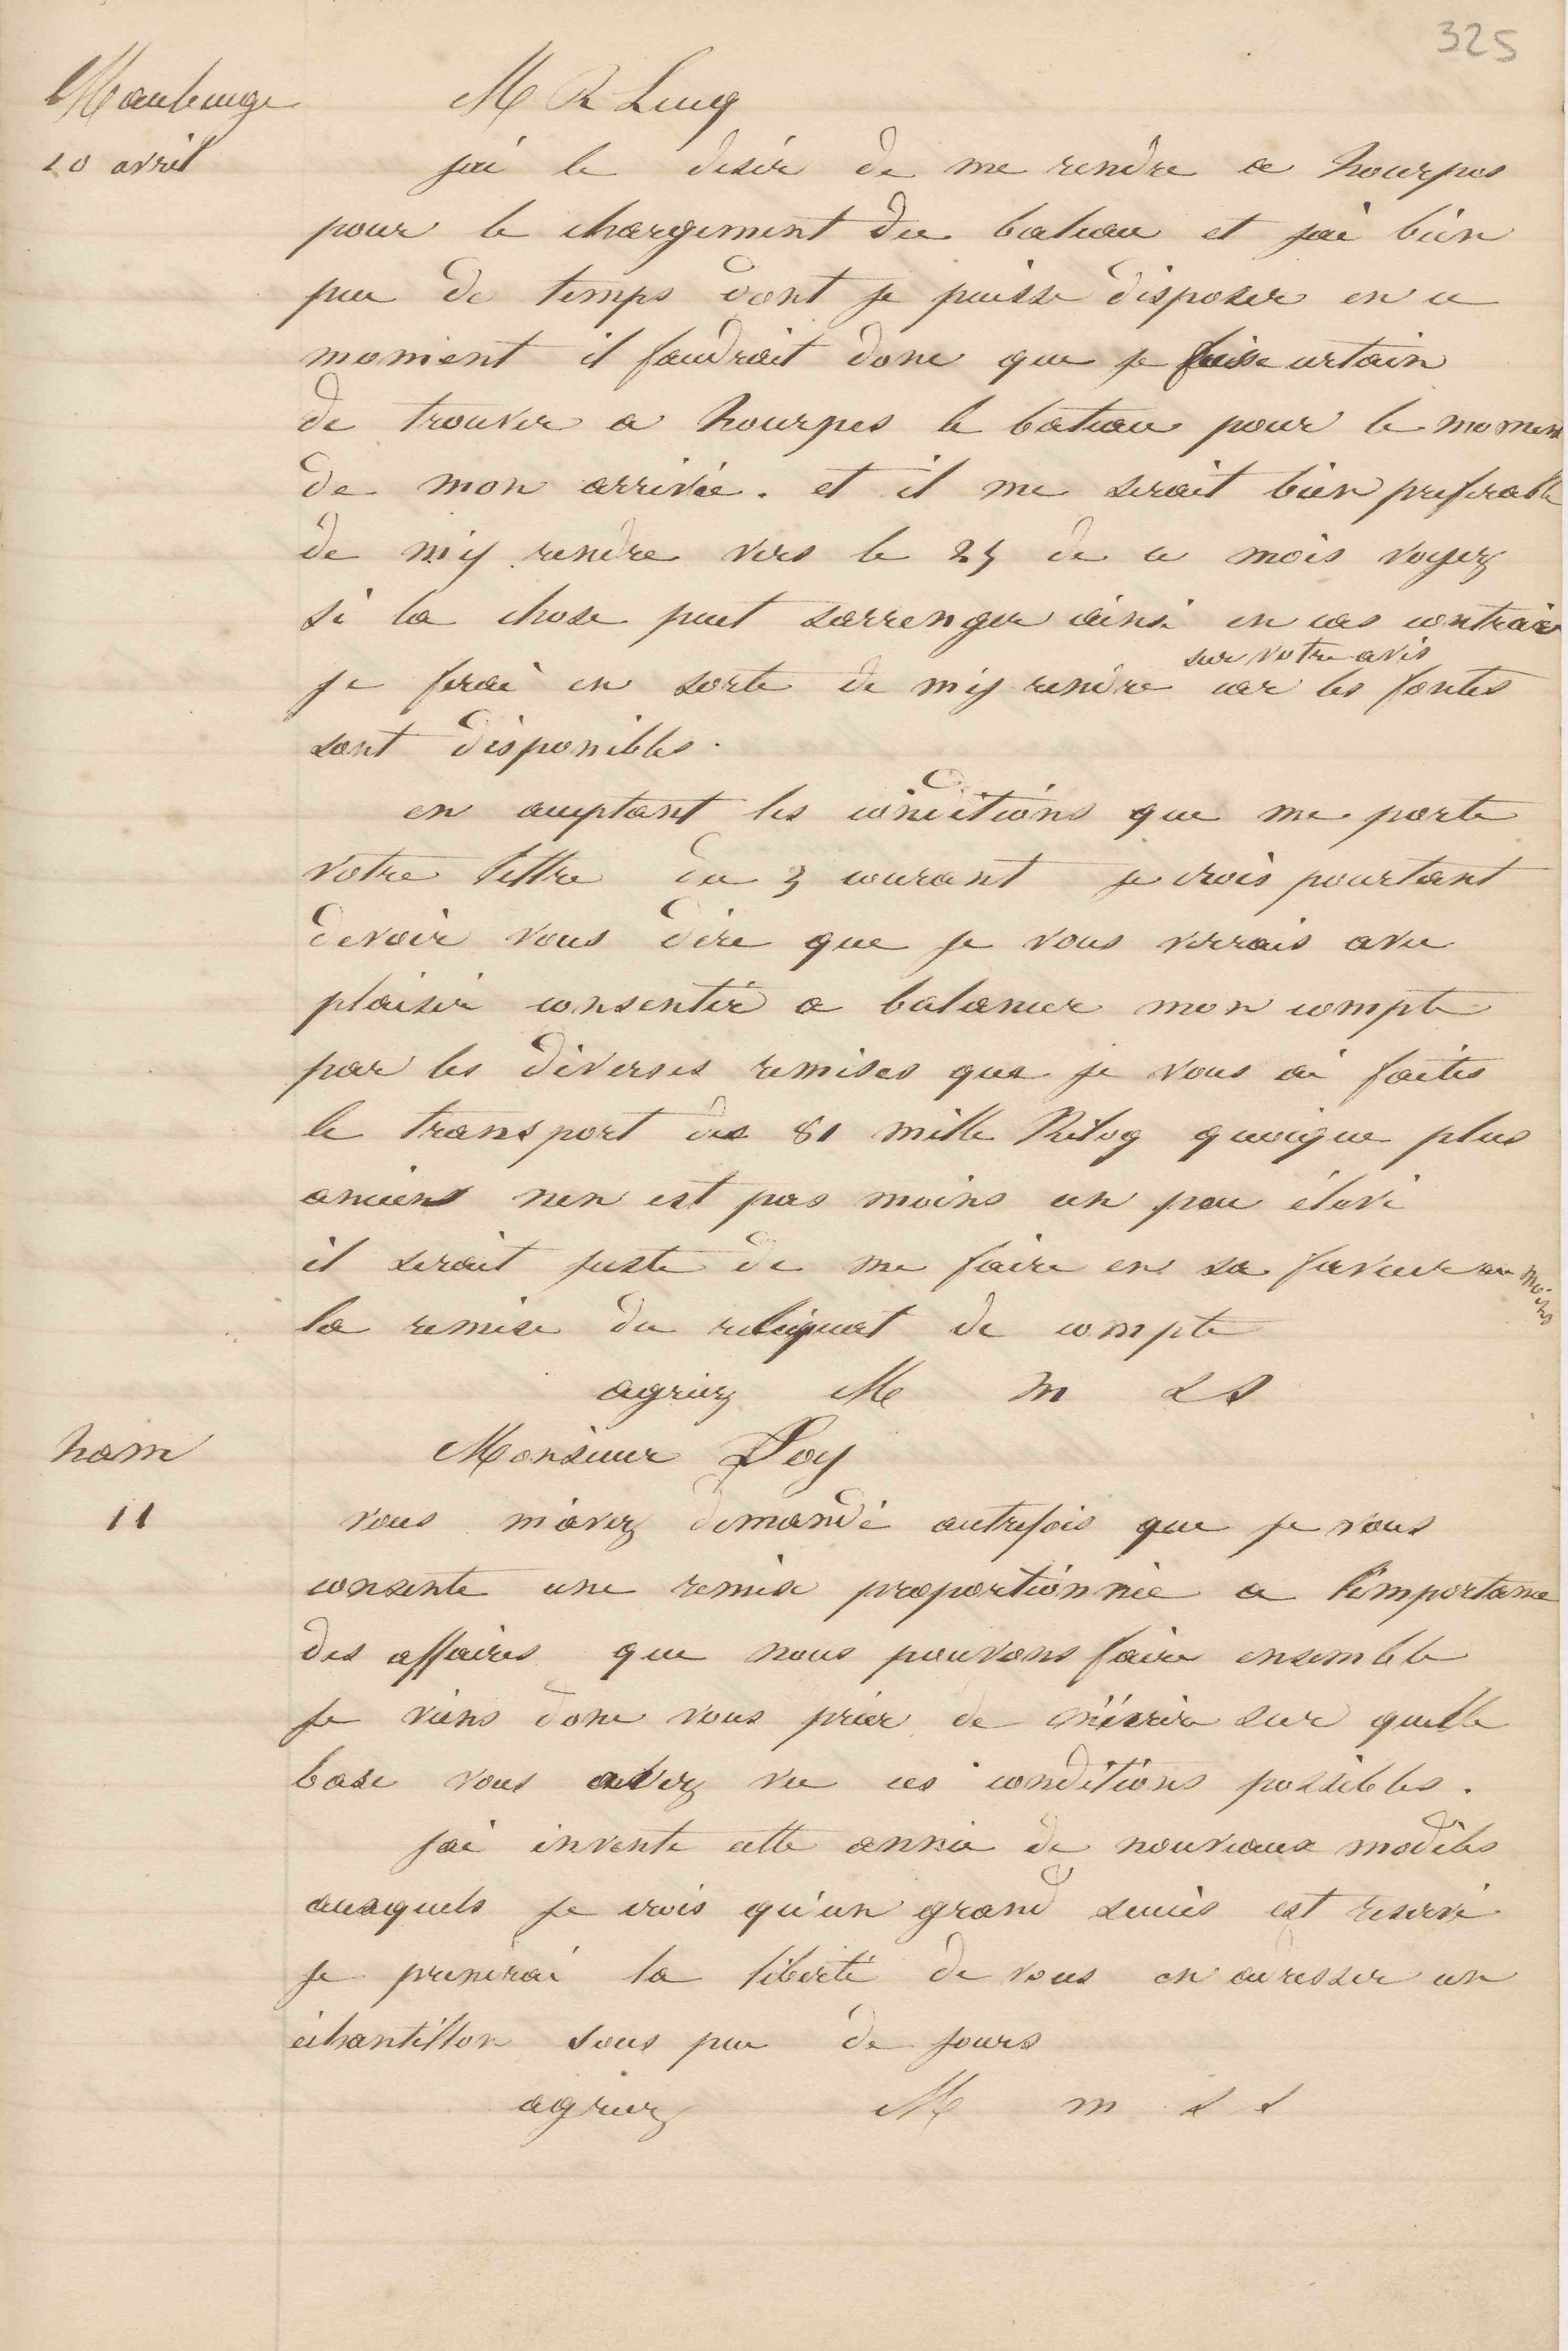 325
Maubeuge
10 avril
M R Lucq
jai le desir de me rendre a hourpes
pour le chargement du bateau et jai bien
peu de temps dont je puisse disposer en ce
moment il faudrait donc que je fusse certain
de trouver a hourpes le bateau pour le moment
de mon arrivée. et il me serait bien preferable
de m'y rendre vers le 25 de ce mois voyez
si la chose peut sarrenger ainsi en cas contraire
sur votre avis
je ferai en sorte de m'y rendre car les fontes
sont disponibles.
en acceptant les conditions que me porte
votre lettre du 3 courant je crois pourtant
devoir vous dire que je vous verrais avec
plaisir consentir a balancer mon compte
par les diverses remises que je vous ai faites
le transport des 81 mille Kilog quoique plus
anciens nen est pas moins un peu élevé
il serait juste de me faire en sa faveur au moins
la remise du reliquat de compte
agréez M m s s
ham
11
Monsieur Loy
vous m'avez demandé autrefois que je vous
consente une remise proportionnée a l'importance
des affaires que nous pouvons faire ensemble
Je viens donc vous prier de m'écrire sur quelle
base vous avez vu ces conditions possibles.
jai invente cette année de nouveaux modèles
auxquels je crois qu'un grand succès est reservé
je prenerai la liberté de vous en adresser un
echantillon sous peu de jours
agréez M m s s